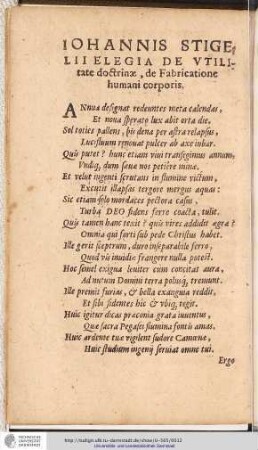 IOHANNIS STIGE,
LII ELEGIA DE VTILI-
tate doctrinæ, de Fabricatione
humani corporis.
ANnua designat redeuntes meta calendas,
Et noua sperato lux abit orta die.
Sol toties pallens, bis dena per astra relapsus,
Lucifluum renouat pulcer ab axe iubar.
Quis putet? hunc etiam viui transegimus annum,
Undiq; dum seua nos petiere mina.
Et velut ingenti seruatus in flumine victum,
Excutit illapsas tergore mergus aquas:
Sic etiam solo mordaces pectora casus,
Turba DEO fidens ferre coacta, tulit.
Quis tamen hanc texit? quis vires addidit ægra?
Omnia qui forti sub pede Christus habet.
Ille gerit sceptrum, duro insuperabile ferro,
Quod vis inuidiæ frangere nulla potest.
Hoc simul exigua leuiter cum concitat aura,
Ad nutum Domini terra polusq; tremunt.
Ille premit furias, & bella exanguia reddit,
Et sibi fidentes hic & vbiq; regit.
Huic igitur dicas praeconia grata iuuentus,
Quæ sacra Pegasei flumina fontis amas.
Hunc ardente tuæ vigilent sudore Camœnæ,
Huic studium ingenij seruiat omne tui.
Ergo
http://tudigit.ulb.tu-darmstadt.de/show/
Universitäts- und Landesbibliothek Darmstadt